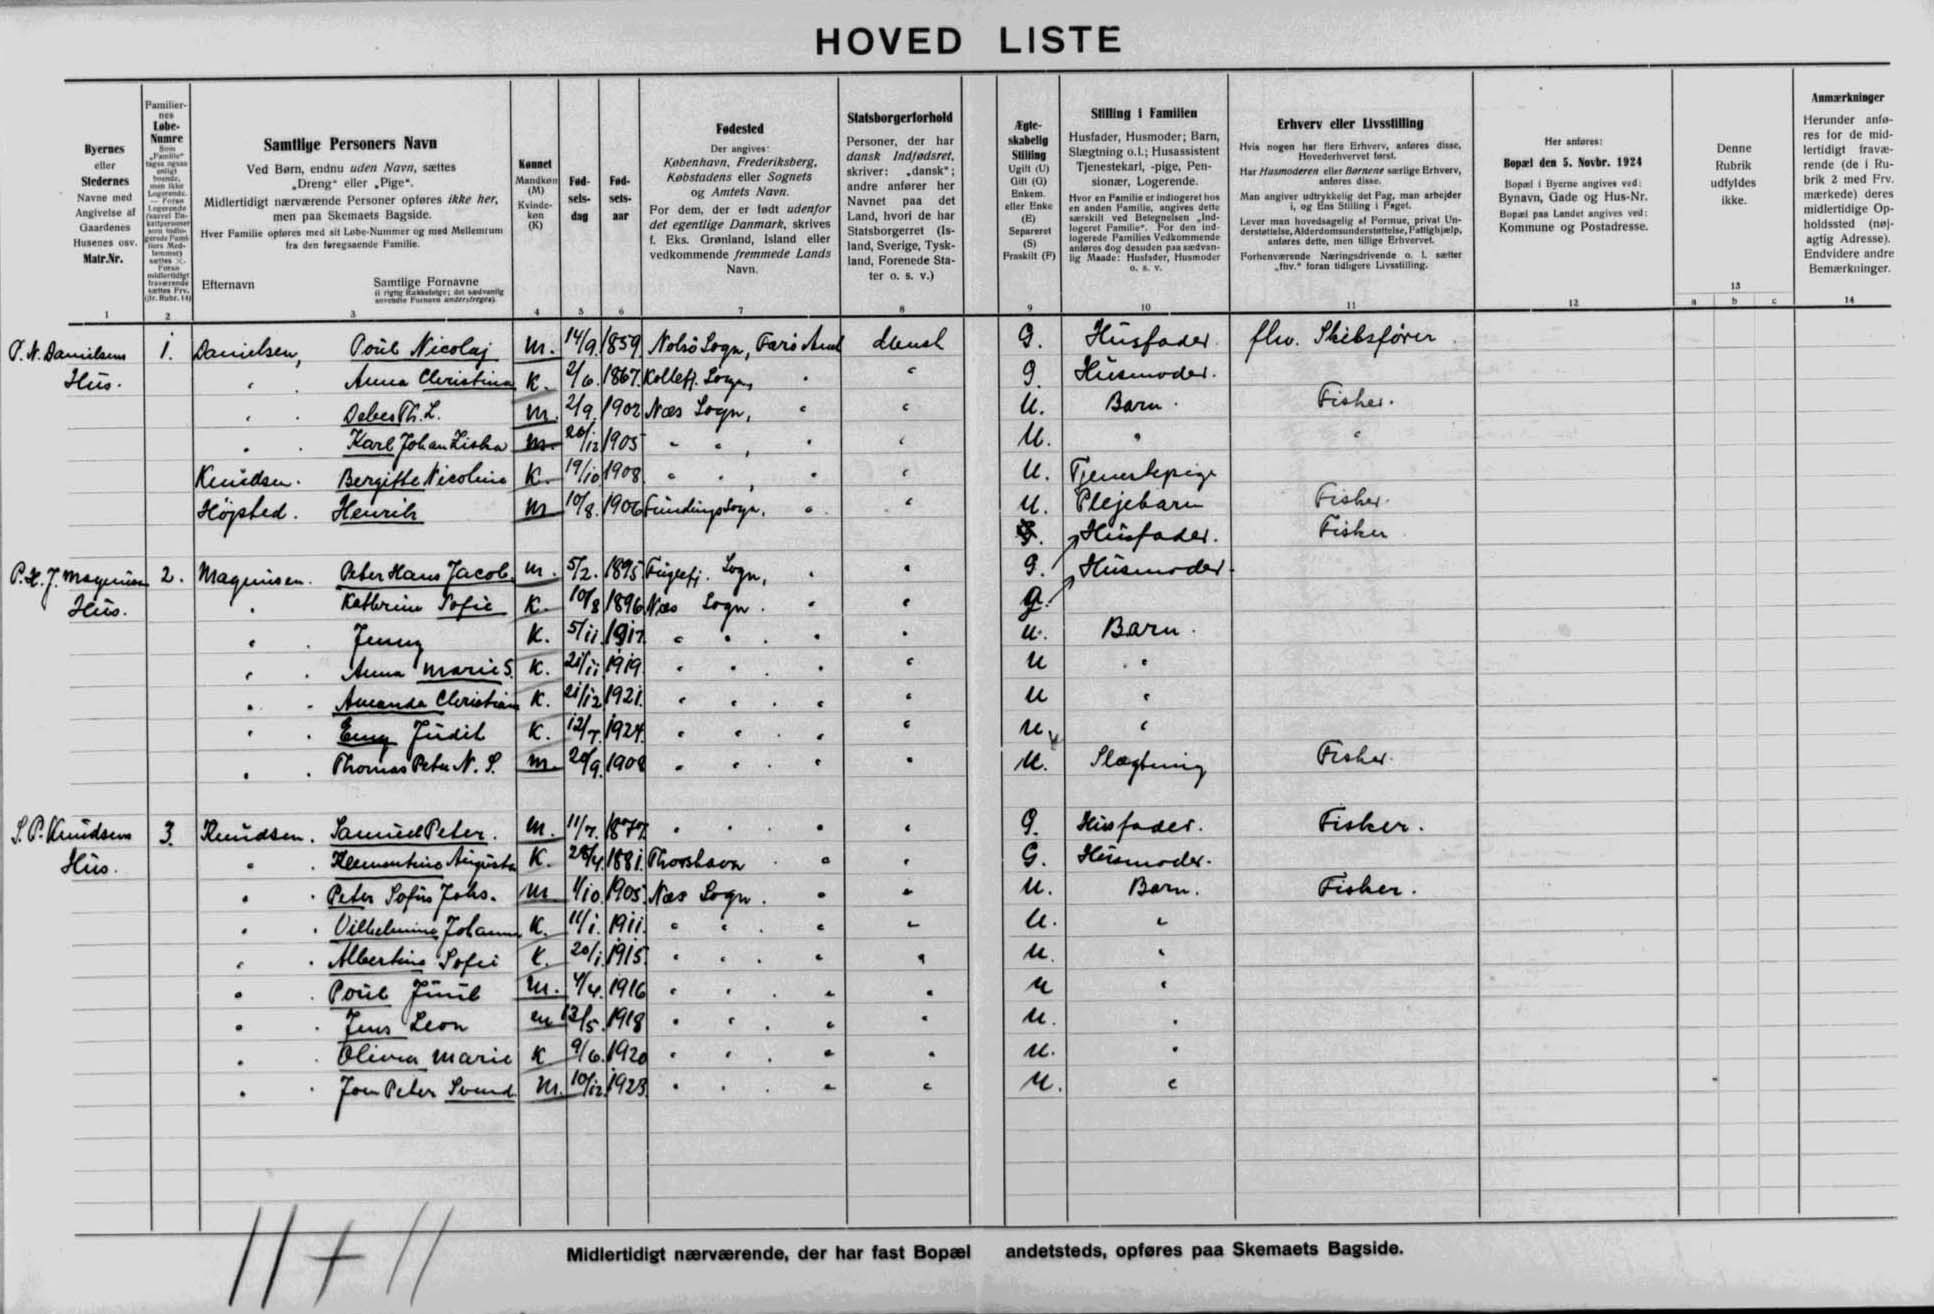 HOVED LISTE
Byernes
eller
Stedernes
Navne med
Angivelse af
Gaardenes
Husenes osv.
Matr.Nr.
1
Familier-
nes
Løbe-
Numre
2
Samtlige Personers Navn
Ved Børn, endnu uden Navn, sættes
„Dreng“ eller „Pige“.
Midlertidigt nærværende Personer opføres ikke her,
men paa Skemaets Bagside.
Hver Familie opføres med sit Løbe-Nummer og med Mellemrum
fra den foregaaende Familie.
Efternavn
Samtlige Fornavne
(i rigtig Rækkefølge; det sædvanlig
anvendte Fornavn understreges).
3
Kønnet
Mandkøn
(M)
Kvinde-
køn
(K)
4
Fød-
sels-
dag
5
Fød-
sels-
aar
6
Fødested
Der angives:
København, Frederiksberg,
Købstadens eller Sognets
og Amtets Navn.
For dem, der er født udenfor
det egentlige Danmark, skrives
f. Eks. Grønland, Island eller
vedkommende fremmede Lands
Navn.
7
Statsborgerforhold
Personer, der har
dansk Indfødsret,
skriver: „dansk“;
andre anfører her
Navnet paa det
Land, hvori de har
Statsborgerret (Is-
land, Sverige, Tysk-
land, Forenede Sta-
ter o. s. v.)
8
Ægte-
skabelig
Stilling
Ugift (U)
Gift (G)
Enkem.
eller Enke
(E)
Separeret
(S)
Fraskilt (F)
9
Stilling i Familien
Husfader, Husmoder; Barn,
Slægtning o.l.; Husassistent
Tjenestekarl, -pige, Pen-
sionær, Logerende.
Hvor en Familie er indlogeret hos
en anden Familie, angives dette
særskilt ved Betegnelsen „Ind-
logeret Familie“. For den ind-
logerede Families Vedkommende
anføres dog desuden paa sædvan-
lig Maade: Husfader, Husmoder
o. s. v.
10
Erhverv eller Livsstilling
Hvis nogen har flere Erhverv, anføres disse,
Hovederhvervet først.
Har Husmoderen eller Børnene særlige Erhverv,
anføres disse.
Man angiver udtrykkelig det Fag, man arbejder
i, og Ens Stilling i Faget.
Lever man hovedsagelig af Formue, privat Un-
derstøttelse, Alderdomsunderstøttelse, Fattighjælp,
anføres dette, men tillige Erhvervet.
Forhenværende Næringsdrivende o. l. sætter
„fhv.“ foran tidligere Livsstilling.
11
Her anføres:
Bopæl den 5. Novbr. 1924
Bopæl i Byerne angives ved:
Bynavn, Gade og Hus-Nr.
Bopæl paa Landet angives ved:
Kommune og Postadresse.
12
Denne
Rubrik
udfyldes
ikke.
13
a b c
Anmærkninger
Herunder anfø-
res for de mid-
lertidigt fravæ-
rende (de i Ru-
brik 2 med Frv.
mærkede) deres
midlertidige Op-
holdssted (nøj-
agtig Adresse).
Endvidere andre
Bemærkninger.
14
P. N. Danielsens 1. Danielsen, Poül Nicolaj M. 14/9. 1859. Nolsö Sogn, Færö Amt dansk G. Hüsfader. fhv. Skibsfører
Hüs. " Anna Christina K. 2/6. 1867. Kollefj. Sogn, " " g. Hüsmoder.
" Debes Th. L. M. 2/9. 1902 Næs Sogn, " " U. Barn. Fisker.
" Karl Johan Ziska M. 26/12 1905 " " " " U. " "
Knüdsen. Bergitte Nicoline K. 19/10 1908. " " " " U. Tjenestepige
Höjsted. Henrik M 10/8. 1906 Fündings Sogn, " " U. Plejebarn Fisker.
G. Hüsfader. Fisker
P. H. J. Magnüsen 2. Magnüsen. Peter Hans Jacob M. 5/2. 1895 Fuglefj. Sogn, " " G. Hüsmoder.
Hüs. " Kathrine Sofie K. 10/8 1896 Næs Sogn. " " g.
" Jenny K. 5/11 1917. " " " " U. Barn.
" Anna Marie S. K. 21/11 1919. " " " " U "
" Amanda Christian K. 21/12 1921. " " " " U "
" Emy Jüdit K. 12/7. 1924. " " " " U "
" Thomas Peter N. S. M. 20/9. 1908 " " " " U. Slægtning Fisker.
S. P. Knüdsens 3. Knüdsen. Samüel Peter. M. 11/7. 1877. " " " " G. Hüsfader. Fisker.
Hüs. " Klementine Augusta K. 28/4 1881. Thorshavn " " G. Hüsmoder.
" Peter Sofüs Johs. M 1/10. 1905. Næs Sogn. " " U. Barn. Fisker.
" Vilhelmine Johanne K. 11/1. 1911. " " " " U. "
" Albertine Sofie K. 20/1. 1915. " " " " U. "
" Poül Jüül M. 4/4. 1916 " " " " U "
" Jens Leon M 13/5. 1918 " " " " U. "
" Olivia Marie K 9/6. 1920 " " " " U. "
" Joen Peter Svend M. 10/12. 1923. " " " " U. "
11 + 11
Midlertidigt nærværende, der har fast Bopæl andetsteds, opføres paa Skemaets Bagside.